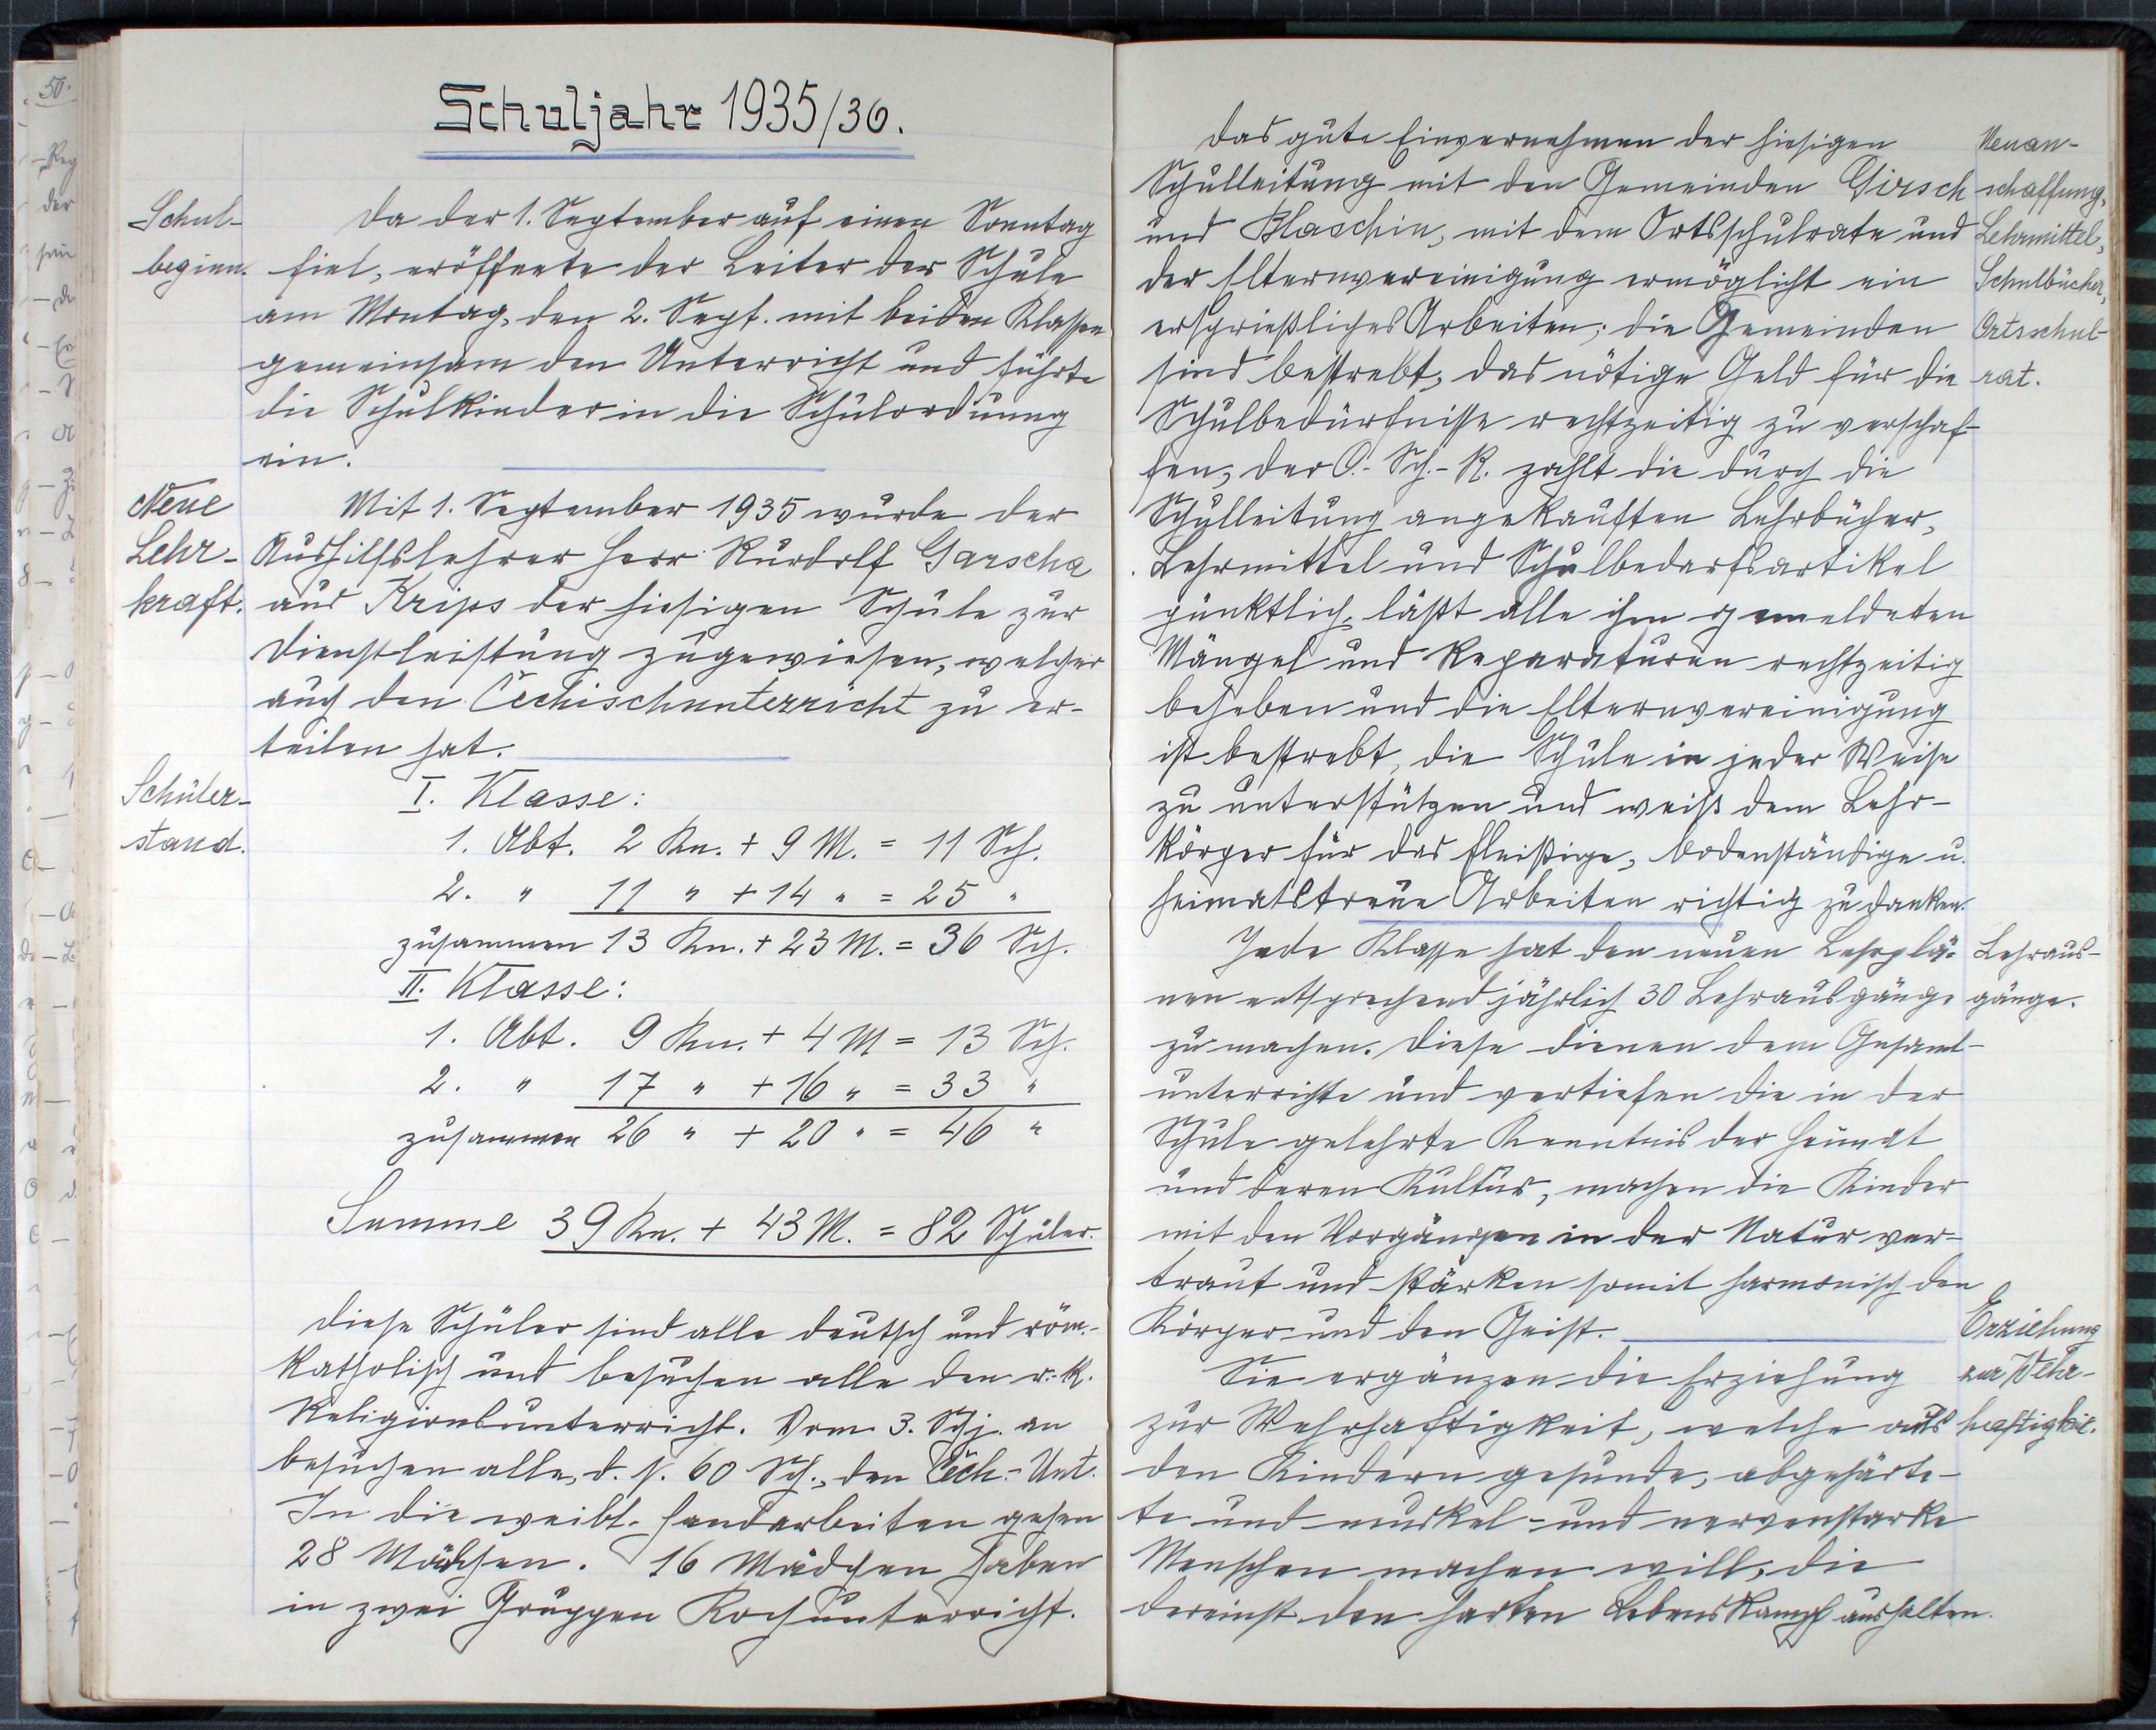 Schuljahr 1935/36.
Schul-
beginn.
Da der 1. September auf einen Sonntag
fiel, eröffnete der Leiter der Schule
am Montag, den 2. Sept. mit beiden Klassen
gemeinsam den Unterricht und führte
die Schulkinder in die Schulordnung
ein.
Neue
Lehr-
kraft.
Mit 1. September 1935 wurde der
Aushilfslehrer Herr Rudolf Garscha
aus Krips der hiesigen Schule zur
Dienstleistung zugewiesen, welcher
auch den Čechischunterricht zu er-
teilen hat.
Schüler-
stand.
I. Klasse:
1. Abt. 2 Kn. + 9 M. = 11 Sch.
2. " 11 " + 14 " = 25 "
zusammen 13 Kn. + 23 M. = 36 Sch.
II. Klasse:
1. Abt. 9 Kn. + 4 M = 13 Sch.
2. " 17 " + 16 " = 33 "
zusammen 26 " + 20 " = 46 "
Summe 39 Kn. + 43 M. = 82 Schüler.
Diese Schüler sind alle deutsch und röm.-
katholisch und besuchen alle den r.-k.
Religionsunterricht. Vom 3. Schj. an
besuchen alle, d. s. 60 Sch., den Čech.-Unt.
In die weibl. Handarbeiten gehen
28 Mädchen. 16 Mädchen haben
in zwei Gruppen Kochunterricht.
Das gute Einvernehmen der hiesigen
Schulleitung mit den Gemeinden Girsch
und Hlaschin, mit dem Ortsschulrate und
der Elternvereinigung ermöglicht ein
ersprießliches Arbeiten; die Gemeinden
sind bestrebt, das nötige Geld für die
Schulbedürfnisse rechtzeitig zu verschaf-
fen, der O.-Sch.-R. zahlt die durch die
Schulleitung angekauften Lehrbücher,
Lehrmittel und Schulbedarfsartikel
pünktlich, läßt alle ihm gemeldeten
Mängel und Reparaturen rechtzeitig
beheben und die Elternvereinigung
ist bestrebt, die Schule in jeder Weise
zu unterstützen und weiß dem Lehr-
körper für das fleißige, bodenständige u.
heimatstreue Arbeiten richtig zu danken.
Neuan-
schaffung,
Lehrmittel,
Schulbücher,
Ortsschul-
rat.
Jede Klasse hat den neuen Lehrplä-
nen entsprechend jährlich 30 Lehrausgänge
zu machen. Diese dienen dem Gesamt-
unterrichte und vertiefen die in der
Schule gelehrte Kenntnis der Heimat
und deren Kultur, machen die Kinder
mit den Vorgängen in der Natur ver-
traut und stärken somit harmonisch den
Körper und den Geist.
Lehraus-
gänge.
Sie ergänzen die Erziehung
zur Wehrhaftigkeit, welche aus
den Kindern gesunde, abgehärte-
te und muskel- und nervenstarke
Menschen machen will, die
dereinst den harten Lebenskampf aushalten.
Erziehung
zur Wehr-
haftigkeit.